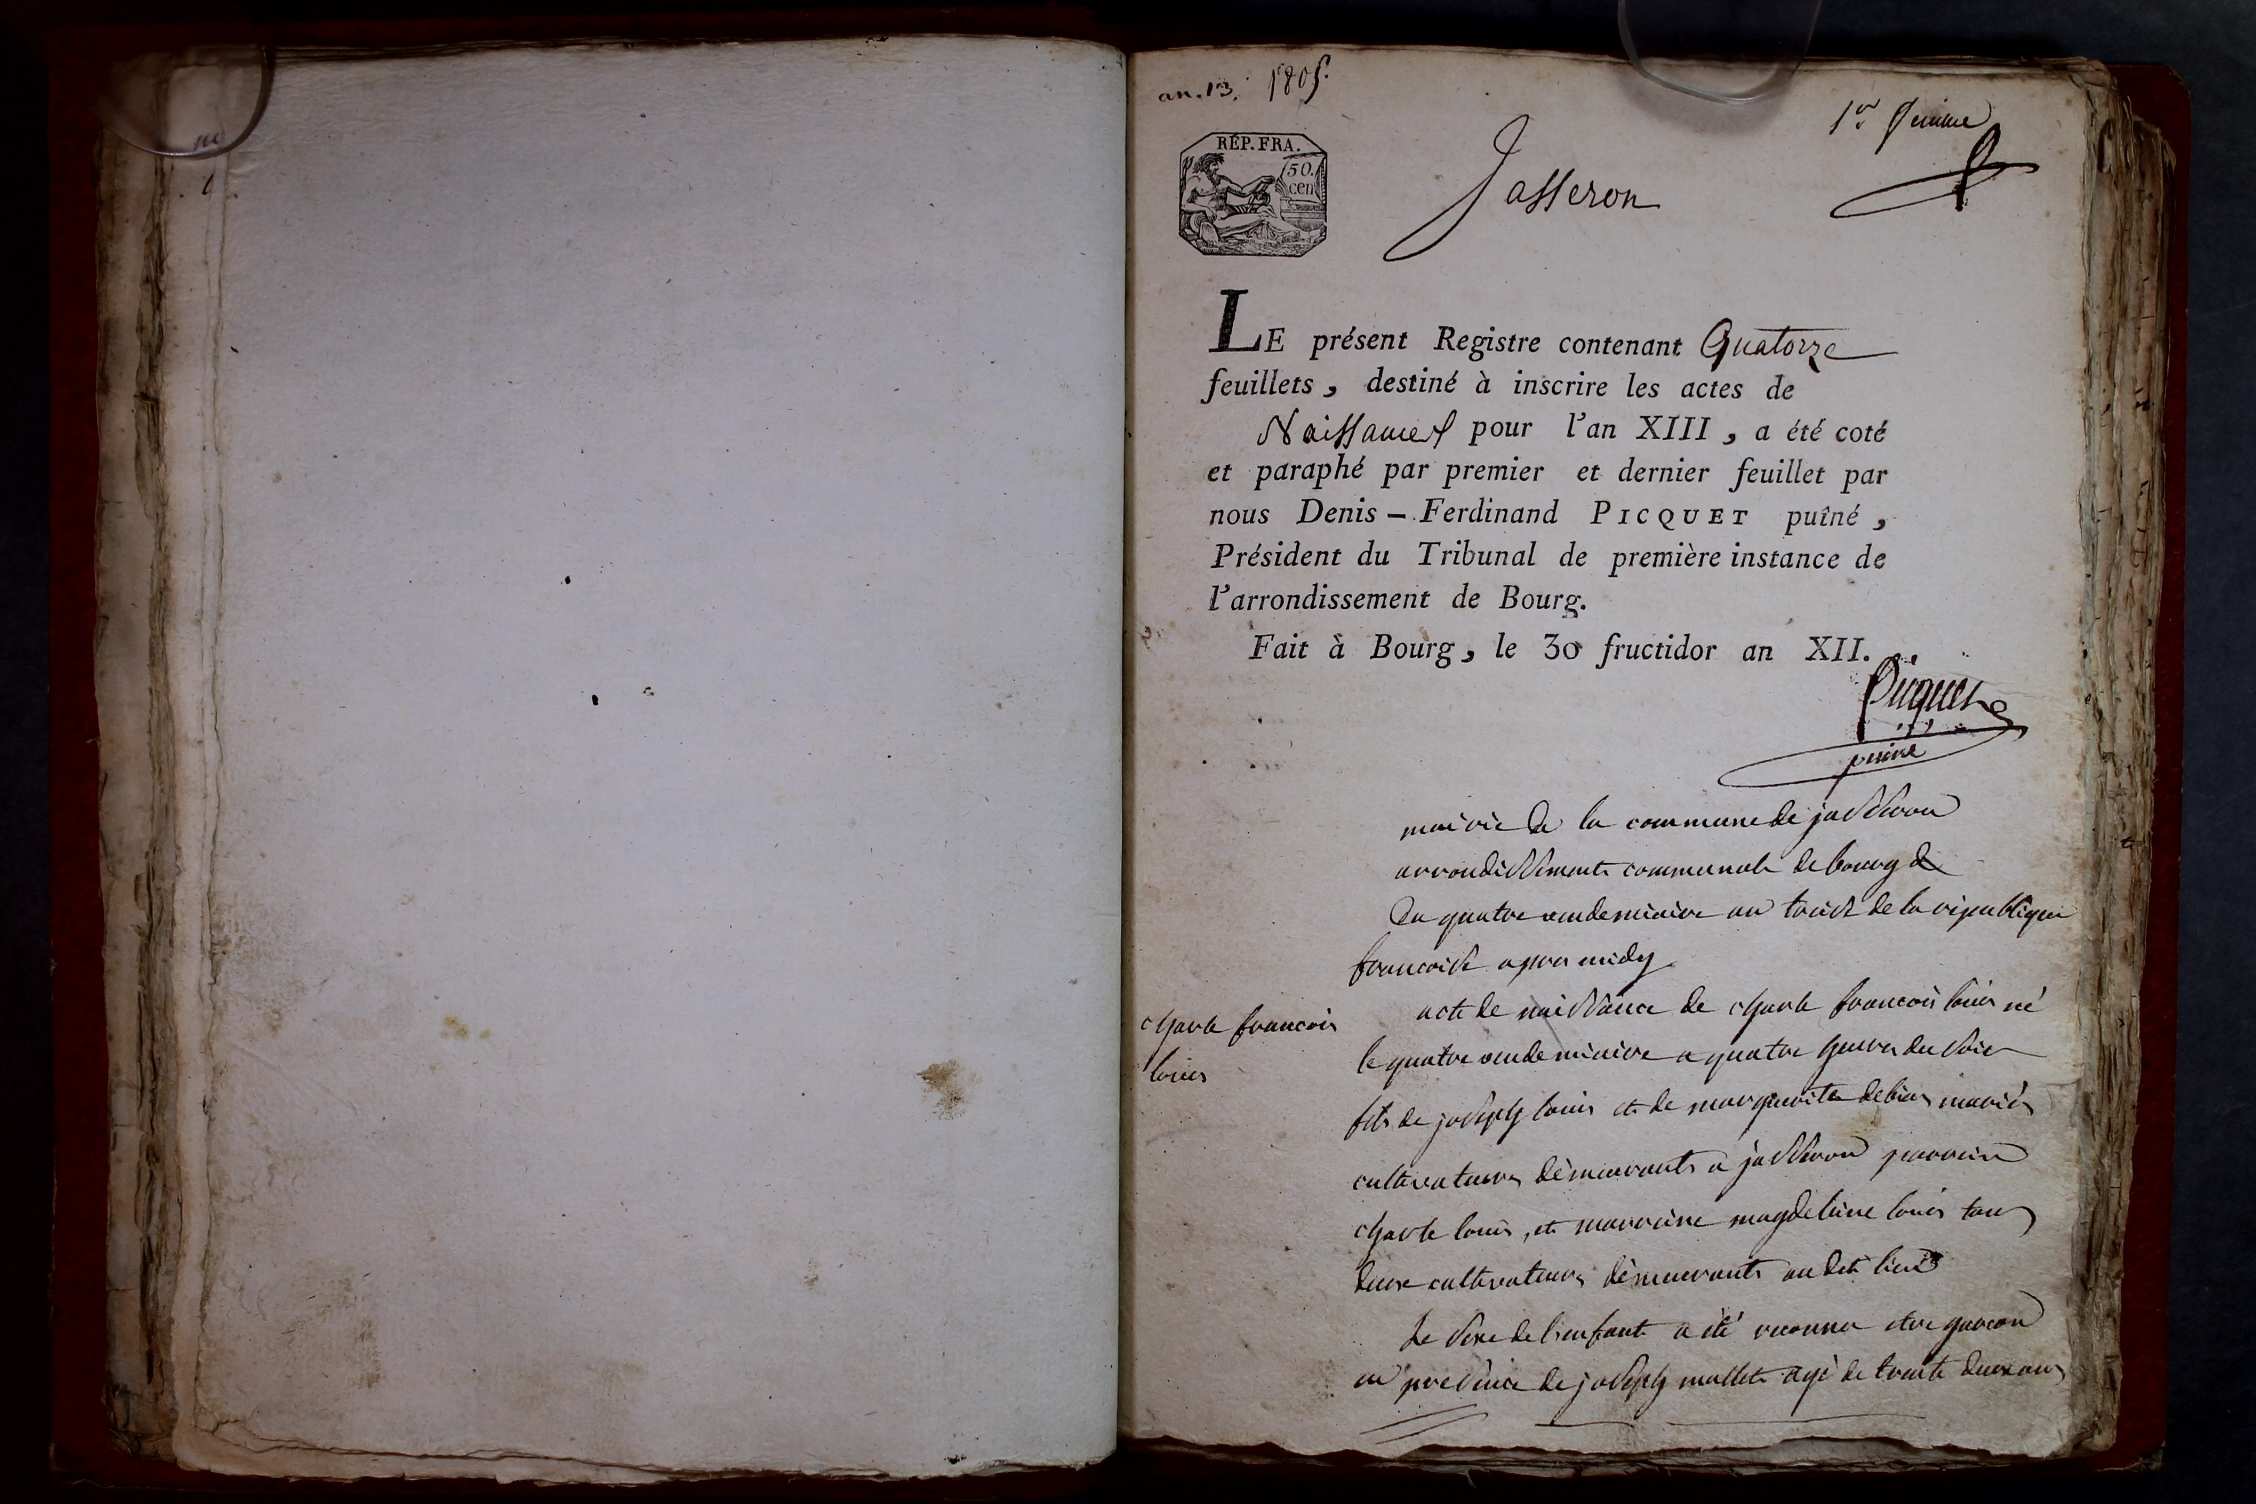 an. 13. 1805.
1er
RÉP. FRA.
50. cen
Jasseron
LE présent Registre contenant Quatorze
feuillets, destiné à inscrire les actes de
Naissances pour l'an XIII, a été coté
et paraphé par premier et dernier feuillet par
nous Denis-Ferdinand PICQUET puîné,
Président du Tribunal de première instance de
l'arrondissement de Bourg.
Fait à Bourg, le 30 fructidor an XII.
Picquet
puiné
mairie de la commune de jasseron
arrondissement communale de bourg
Du quatre vendemiaire an treise de la république
francoise apres midy
charle francois
louis
acte de naissance de charle francois louis né
le quatre vendemiaire a quatre heures du soir
fils de joseph louis et de marguerite debias mariés
cultivateurs démeurants a jasseron parrein
charle louis, et marreine magdeleine louis tous
deux cultivateurs démeurants au dit lieu
Le sexe de l'enfant a été reconnu etre garcon
en presence de joseph mallet agé de trente deux ans